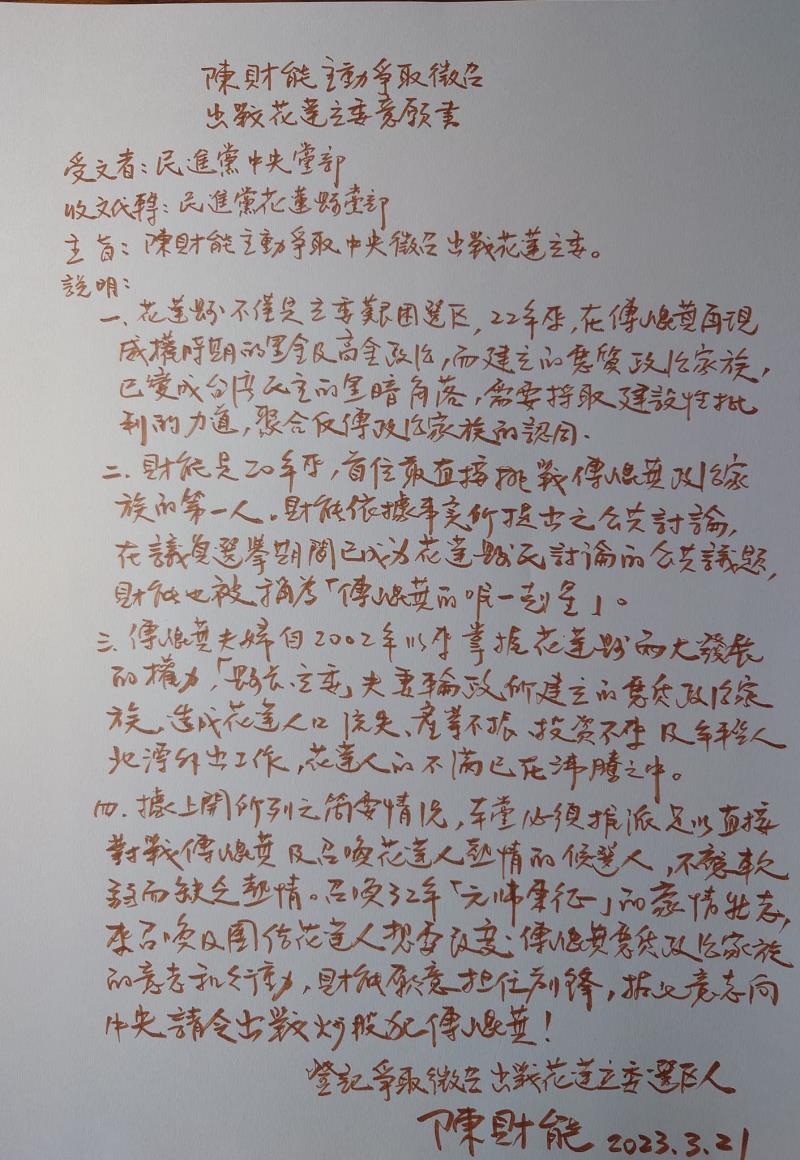 陳財能主動爭取徵召
出戰花蓮立委意願書
受文者：民進黨中央黨部
收文代轉：民進黨花蓮縣黨部
主旨：陳財能主動爭取中央徵召出戰花蓮立委。
說明：
一、花蓮縣不僅是立委艱困選区，22年來，在傅崐萁再現
威權時期的黑金及高金政治，而建立的惡質政治家族，
已變成台湾民主的黑暗角落，需要採取建設性批
判的力道，聚合反傅政治家族的認同.
二、財能是20年來，首位敢直接挑戰傅崐萁政治家
族的第一人。財能依據事实所提出之公共討論，
在議員選舉期間已成为花蓮縣民討論的公共議題，
財能也被稱為「傅崐萁的唯一剋星」。
三、傅崐萁夫婦自2002年以來掌握花蓮縣兩大發展
的權力，「縣長、立委」夫妻輪政所建立的惡質政治家
族，造成花蓮人口流失、產業不振、投資不來及年輕人
北漂外出工作，花蓮人的不滿已在沸騰之中。
四、據上開所列之簡要情況，本黨必須推派足以直接
對戰傅崐萁及召喚花蓮人熱情的候選人，不應軟
弱而缺乏熱情。召喚32年「元帥東征」的豪情壯志，
來召喚及團結花蓮人想要改变傅崐萁惡質政治家族
的意志和行動，財能願意担任前鋒，据此意志向
中央請令出戰炒股犯傅崐萁！
登記爭取徵召出戰花蓮立委選区人
陳財能 2023.3.21